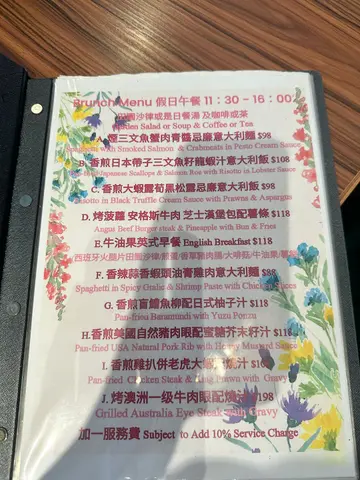 Brunch Menu 假日午餐 11：30 - 16：00
田園沙律或是日餐湯 及咖啡或茶
Garden Salad or Soup & Coffee or Tea
A. 煙三文魚蟹肉青醬忌廉意大利麵 $98
Spaghetti with Smoked Salmon & Crabmeats in Pesto Cream Sauce
B. 香煎日本帶子三文魚籽龍蝦汁意大利飯 $108
Japanese Scallops & Salmon Roe with Risotto in Lobster Sauce
C. 香煎大蝦露荀黑松露忌廉意大利飯 $98
Risotto in Black Truffle Cream Sauce with Prawns & Asparagus
D. 烤菠蘿 安格斯牛肉 芝士漢堡包配薯條 $118
Angus Beef Burger steak & Pineapple with Bun & Fries
E. 牛油果英式早餐 English Breakfast $118
西班牙火腿片田園沙律/煎蛋/香草豬肉腸/大啡菇/牛油果/薯
F. 香辣蒜香蝦頭油膏雞肉意大利麵 $88
Spaghetti in Spicy Garlic & Shrimp Paste with Chicken Slices
G. 香煎盲鰽魚柳配日式柚子汁 $118
Pan-fried Barramundi with Yuzu Ponzu
H. 香煎美國自然豬肉眼配蜜糖芥末籽汁 $118
Pan-fried USA Natural Pork Rib with Honey Mustard Sauce
I. 香煎雞扒併老虎大蝦 燒汁 $168
Pan-fried Chicken Steak & King Prawn with Gravy
J. 烤澳洲一級牛肉眼配燒汁 $198
Grilled Australia Eye Steak with Gravy
加一服務費 Subject to Add 10% Service Charge